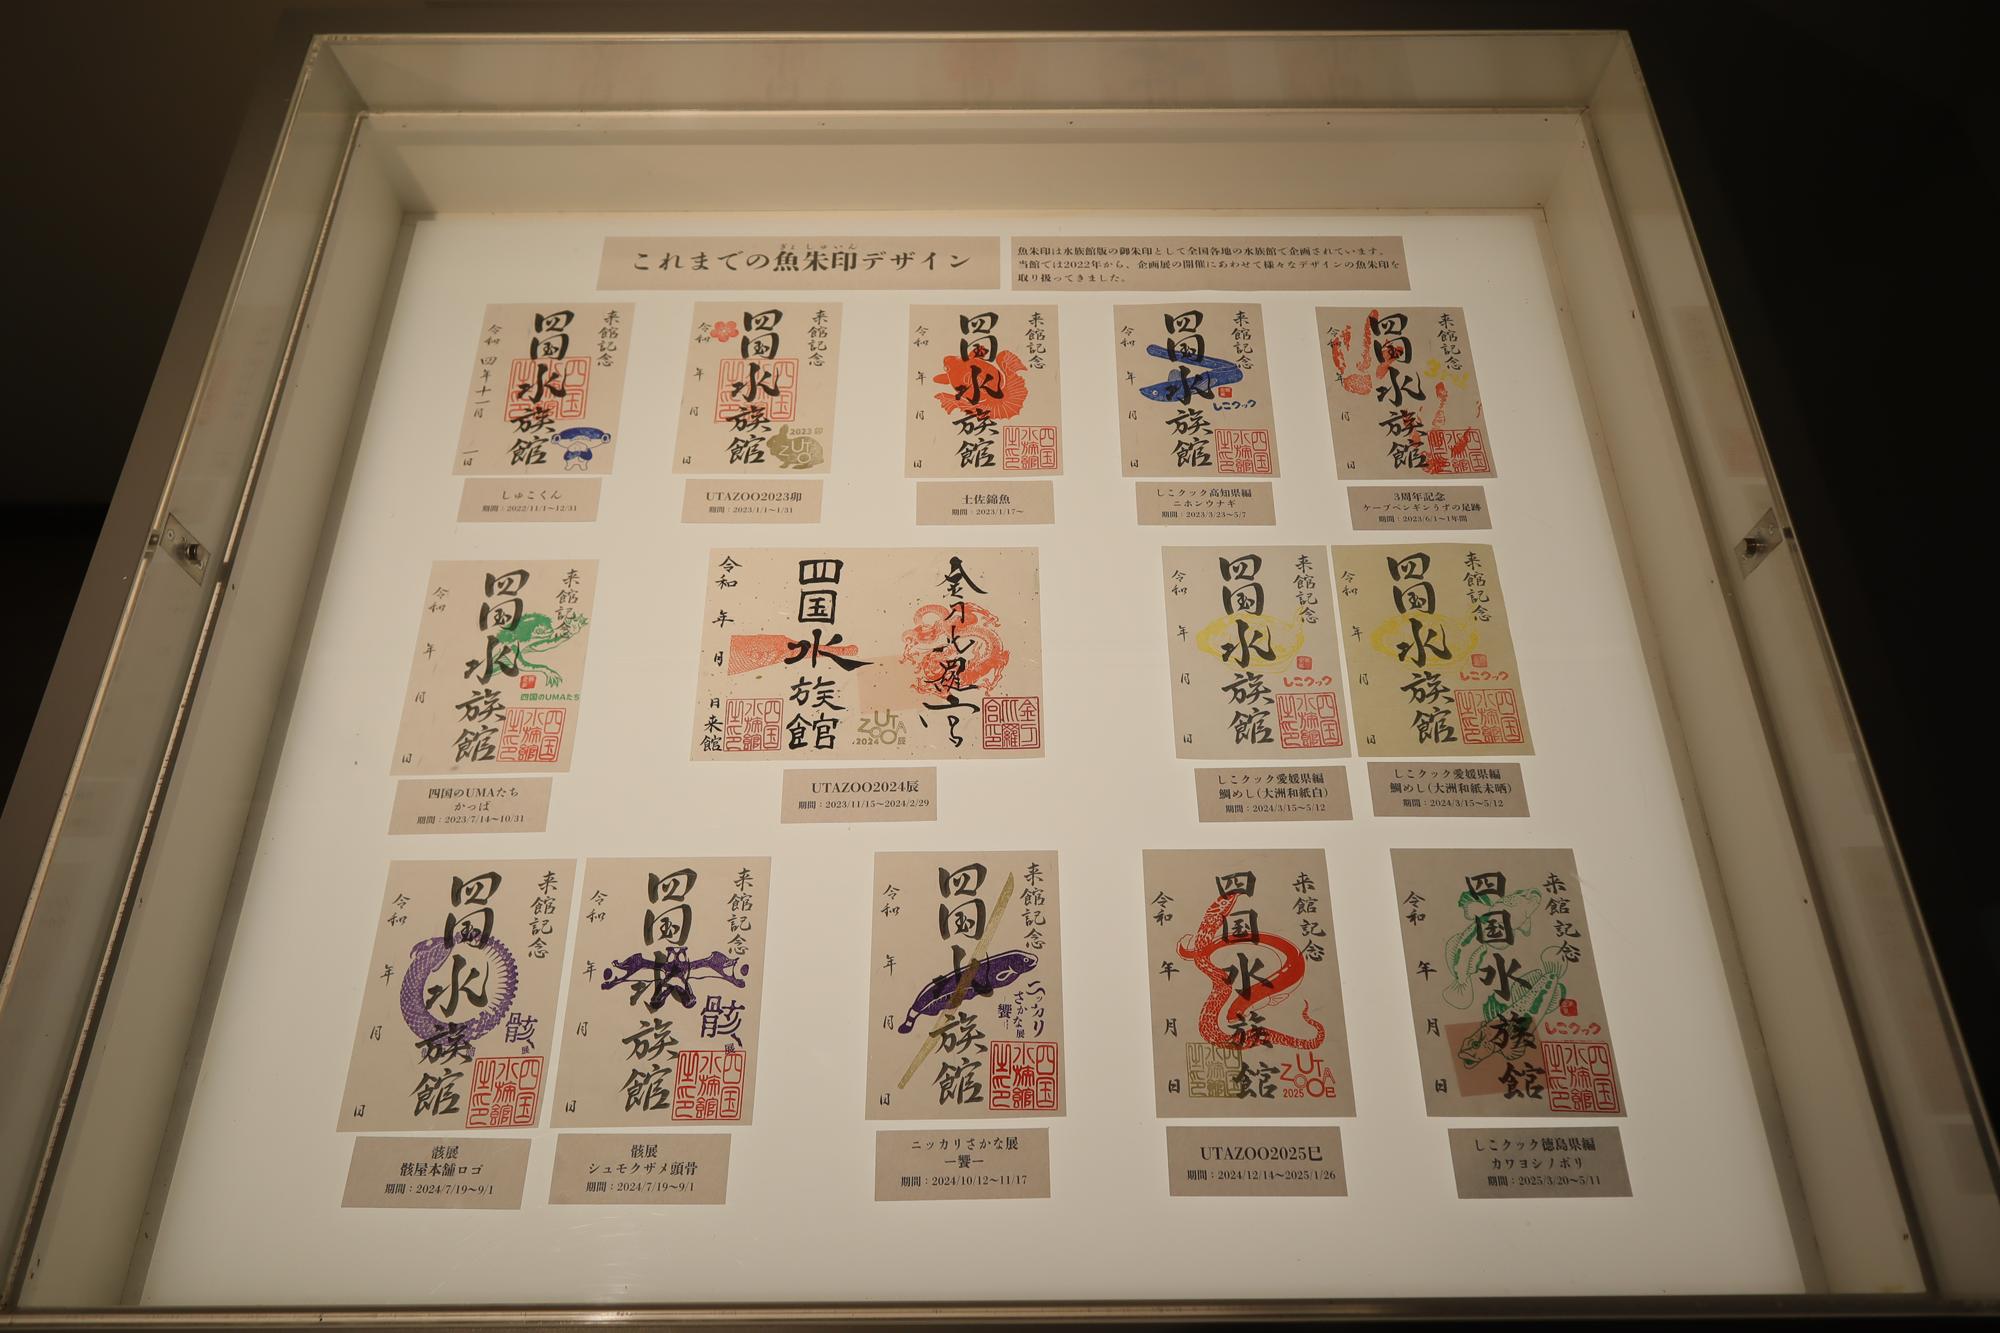 ぎょしゅいん
これまでの魚朱印デザイン
魚朱印は水族館版の御朱印として全国各地の水族館で企画されています。
当館では2022年から、企画展の開催にあわせて様々なデザインの魚朱印を
取り扱ってきました。
来館記念
四国水族館
令和四年十一月一日
しゅこくん
期間：2022/11/1〜12/31
来館記念
四国水族館
令和 年 月 日
2023 卯
UTAZOO
UTAZOO2023卯
期間：2023/1/1〜1/31
来館記念
四国水族館
令和 年 月 日
土佐錦魚
期間：2023/1/17〜
来館記念
四国水族館
令和 年 月 日
しこクック
しこクック高知県編
ニホンウナギ
期間：2023/3/23〜5/7
来館記念
四国水族館
令和 年 月 日
3rd
3周年記念
ケープペンギンうずの足跡
期間：2023/6/1〜1年間
来館記念
四国水族館
令和 年 月 日
四国のUMAたち
四国のUMAたち
かっぱ
期間：2023/7/14〜10/31
金刀比羅宮
四国水族館
令和 年 月 日来館
UTAZOO
2024 展
UTAZOO2024辰
期間：2023/11/15〜2024/2/29
来館記念
四国水族館
令和 年 月 日
しこクック
しこクック愛媛県編
鯛めし(大洲和紙白)
期間：2024/3/15〜5/12
来館記念
四国水族館
令和 年 月 日
しこクック
しこクック愛媛県編
鯛めし(大洲和紙未晒)
期間：2024/3/15〜5/12
来館記念
四国水族館
令和 年 月 日
骸展
骸展
骸屋本舗ロゴ
期間：2024/7/19〜9/1
来館記念
四国水族館
令和 年 月 日
骸展
骸展
シュモクザメ頭骨
期間：2024/7/19〜9/1
来館記念
四国水族館
令和 年 月 日
ニッカリさかな展
―饗―
ニッカリさかな展
―饗―
期間：2024/10/12〜11/17
来館記念
四国水族館
令和 年 月 日
UTAZOO
2025
UTAZOO2025巳
期間：2024/12/14〜2025/1/26
来館記念
四国水族館
令和 年 月 日
しこクック
しこクック徳島県編
カワヨシノボリ
期間：2025/3/20〜5/11